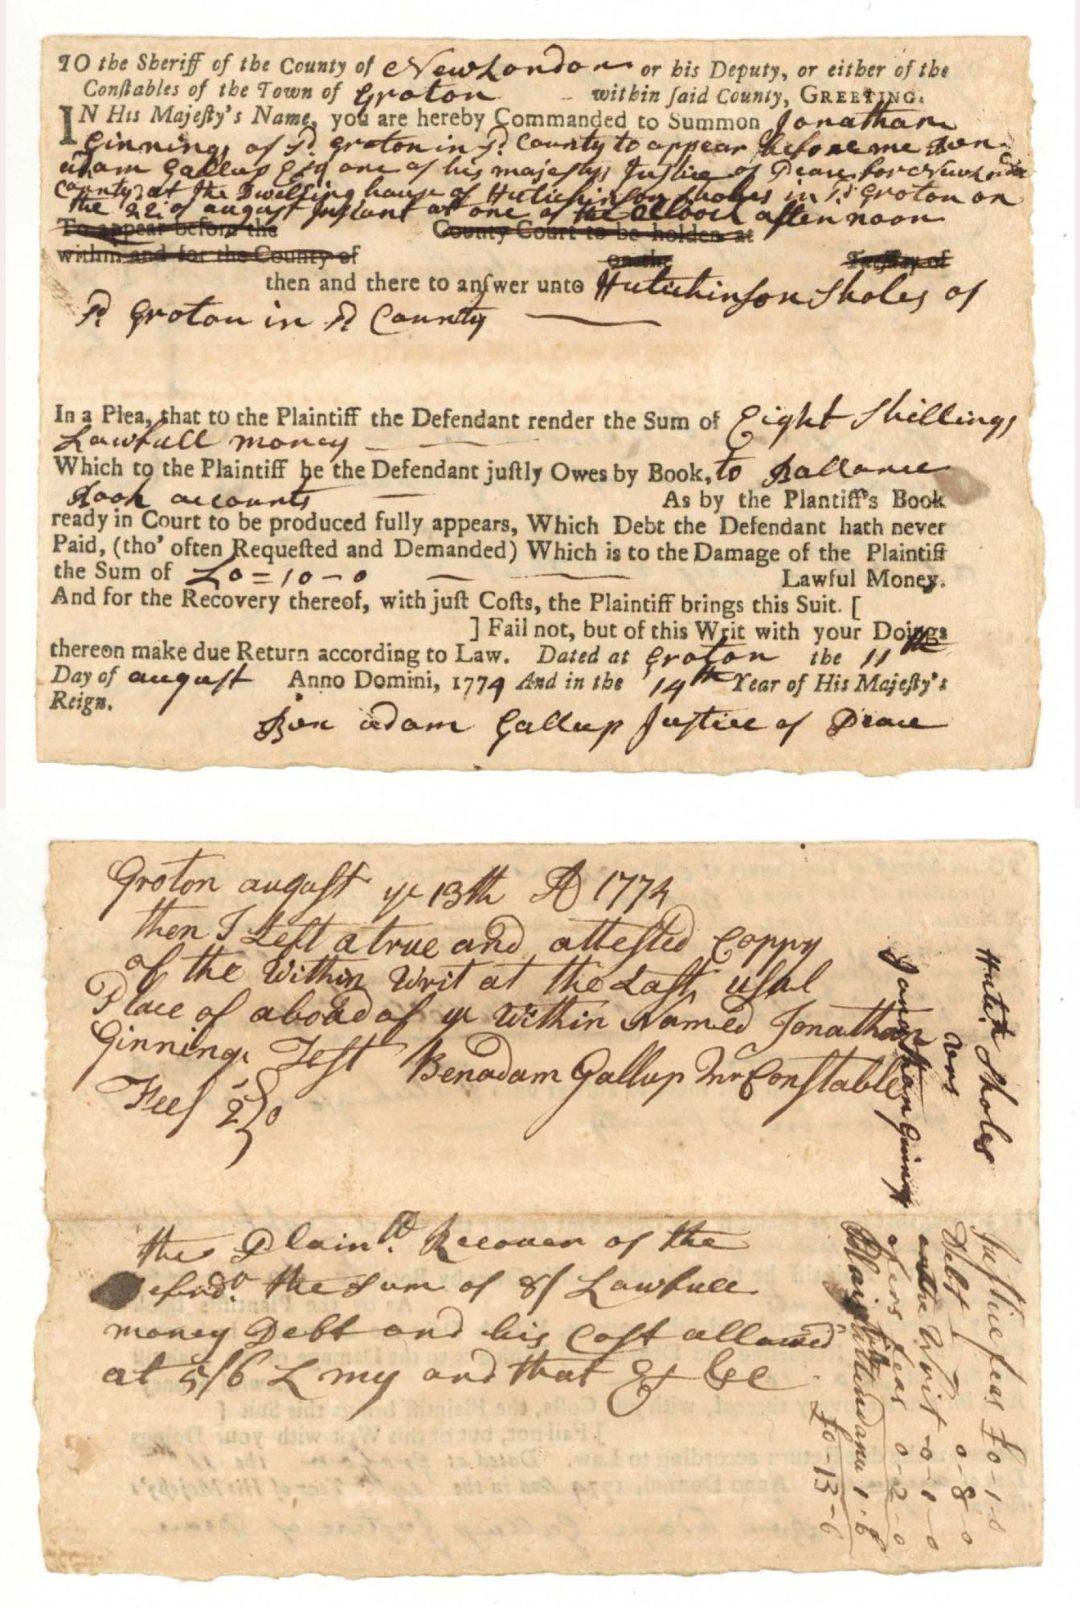 TO the Sheriff of the County of New London or his Deputy, or either of the
Conſtables of the Town of Groton within ſaid County, GREETING.
IN His Majeſty's Name, you are hereby Commanded to Summon Jonathan
Ginnings of sd. Groton in sd. County to appear before me Ben
adam Gallup Esq one of his majestys Justice of Peace for New London
County at the Dwelling house of Hutichinson Sholes in sd Groton on
the 22: of august Instant at one of the Clock after noon
To appear before the County Court to be holden at
within and for the County of on the Tueſday of
then and there to anſwer unto Hutichinson Sholes of
sd Groton in sd County
In a Plea, that to the Plaintiff the Defendant render the Sum of Eight Shillings
Lawfull money
Which to the Plaintiff he the Defendant juſtly Owes by Book, to Ballance
Book accounts As by the Plantiff's Book
ready in Court to be produced fully appears, Which Debt the Defendant hath never
Paid, (tho' often Requeſted and Demanded) Which is to the Damage of the Plaintiff
the Sum of £0=10-0 Lawful Money.
And for the Recovery thereof, with juſt Coſts, the Plaintiff brings this Suit. [
] Fail not, but of this Writ with your Doings
thereon make due Return according to Law. Dated at Groton the 11th
Day of august Anno Domini, 1774 And in the 14th Year of His Majeſty's
Reign.
Ben adam Gallup Justice of Peace
Groton august ye 13th AD 1774
then I Left a true and attested Coppy
of the Within Writ at the Last usal
Place of aboad of ye Within Named Jonathan
Ginnings Test Benadam Gallup Jnr Constable
Fees 2/0
the Plaintff. Recover of the
Defendt. the Sum of 8/ Lawfull
money Debt and his Cost allowed
at 5/6 L my and that &c
Hutichn Sholes
vers
Jonathan Ginings
Justice feas £0-1-0
Debt 0-8-0
the Writ 0-1-0
ofesers feas 0-2-0
Plaintifs attendance 1-6
£0-13-6